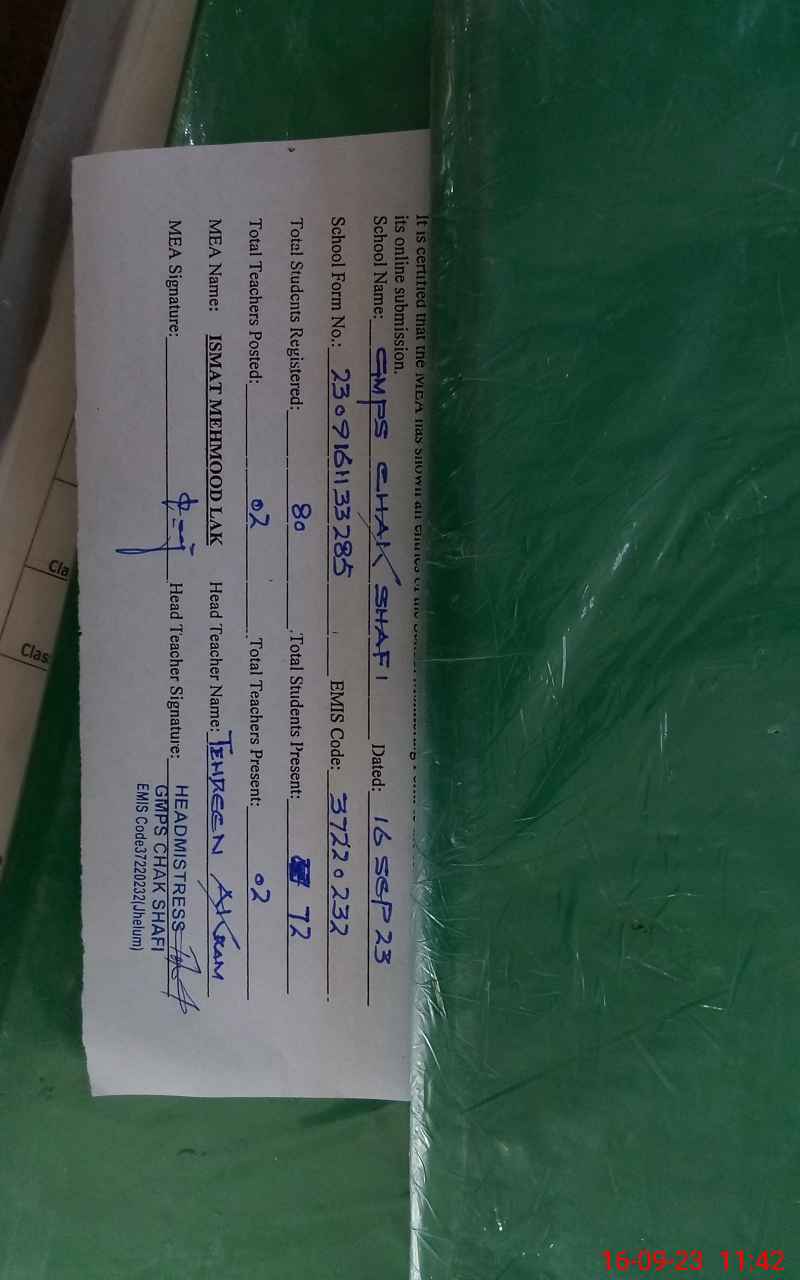 It is certified that the MEA has shown all entries of the School Monitoring Form
its online submission.
School Name: GMPS CHAK SHAFI Dated: 16 SEP 23
School Form No.: 2309161133285 EMIS Code: 37220232
Total Students Registered: 80 Total Students Present: 72
Total Teachers Posted: 02 Total Teachers Present: 02
MEA Name: ISMAT MEHMOOD LAK Head Teacher Name: TEHREEN AKRAM
MEA Signature: Head Teacher Signature:
HEADMISTRESS
GMPS CHAK SHAFI
EMIS Code37220232(Jhelum)
Cla
Clas
16-09-23 11:42